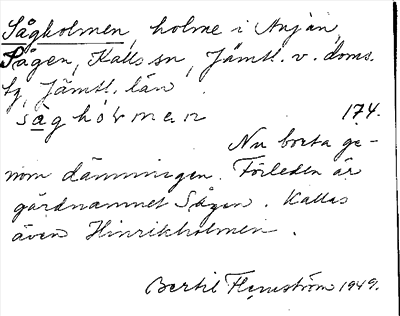 Sågholmen, holme i Anjan,
Sågen, Kalls sn, Jämtl. v. doms.
tg, Jämtl. län.
såghólmen 174.
Nu borta ge-
nom dämningen. Förleden är
gårdnamnet Sågen. Kallas
även Hinrikholmen.
Bertil Flemström 1949.